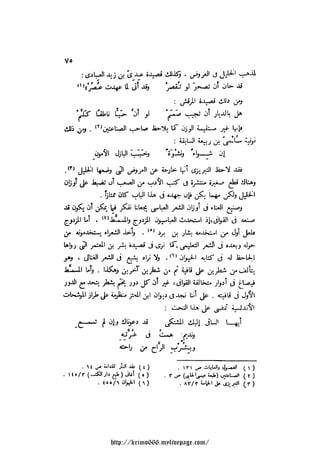 ٧٥
لمذهب الخليل فى العروض . وكذلك قصيدة عدىّ بن زيد العبادى :
قد حان أن تصحوَ أو تُقصرْ وقد أتى لما عهدت عُصُرْ (١)
ومن ذلك قصيدة المرقش :
هل بالديار أن تجيب صَمَمْ لو أن حيًّا ناطقًا كَلَّمْ
فإنها غير مستقيمة الوزن كما يلاحظ صاحب الصناعتين (٢) . ومن ذلك
نونية سُلْمىّ بن ربيعة السابقة :
إن شِـــواءً ونَشْوَةً وخَبَبَ البازل الأمونِ
فقد لاحظ التبريزى أنها خارجة عن العروض التى وضعها الخليل (٣) .
وهناك قطع صغيرة منتشرة فى كتب الأدب من الصعب أن تضبط على أوزان
الخليل ولكن مهما يكن فإن جهده فى هذا الباب كان ممتازاً .
وصنيع الغناء فى أوزان الشعر العباسى يجعلنا نفكر فيما يمكن أن يكون قد
صنعه فى القوافى، إذ استحدث العباسيون المزدوج والمسمَّط (٤) . أما المزدوج
فلعل أول من استحدثه بشار بن برد (٥) . وأخذ الشعراء يستخدمونه من
حوله وبعده فى الشعر التعليمى، كما نرى فى قصيدة بشر بن المعتمر التى رواها
الجاحظ له فى كتابه الحيوان (٦) . ولا نراه يشيع فى الشعر الغنائى ، وهو
يتألف من شطرين على قافية ثم من شطرين آخرين وهكذا . وأما المسمَّط
فيصاغ فى أدوار مختلفة القوافى، غير أن كل دور يختم بشطر يتحد مع الدور
الأول فى قافيته . على أننا نجد فى ديوان ابن المعتز منظومة على طراز الموشحات
الأندلسية تمضى على هذا النحت :
أيهــا الساقى إليك المشتكى قد دعوناك وإن لم تسمــعِ
ونديمٍ همتُ فى غُرَّتِهِ
وبشُرْب الرَّاح من راحته
(١) الفصول والغايات ص ١٣١ .
(٢) الصناعتين (طبعة عيسى الحلبى) ص ٣ .
(٣) التبريزى على الحماسة ٨٣/٣ .
(٤) نقد النثر لقدامة ص ٦٤ .
(٥) أغانى (طبع دار الكتب) ١٤٥/٣ .
(٦) الحيوان ٤٥٥/٦
http://krimo666.mylivepage.com/